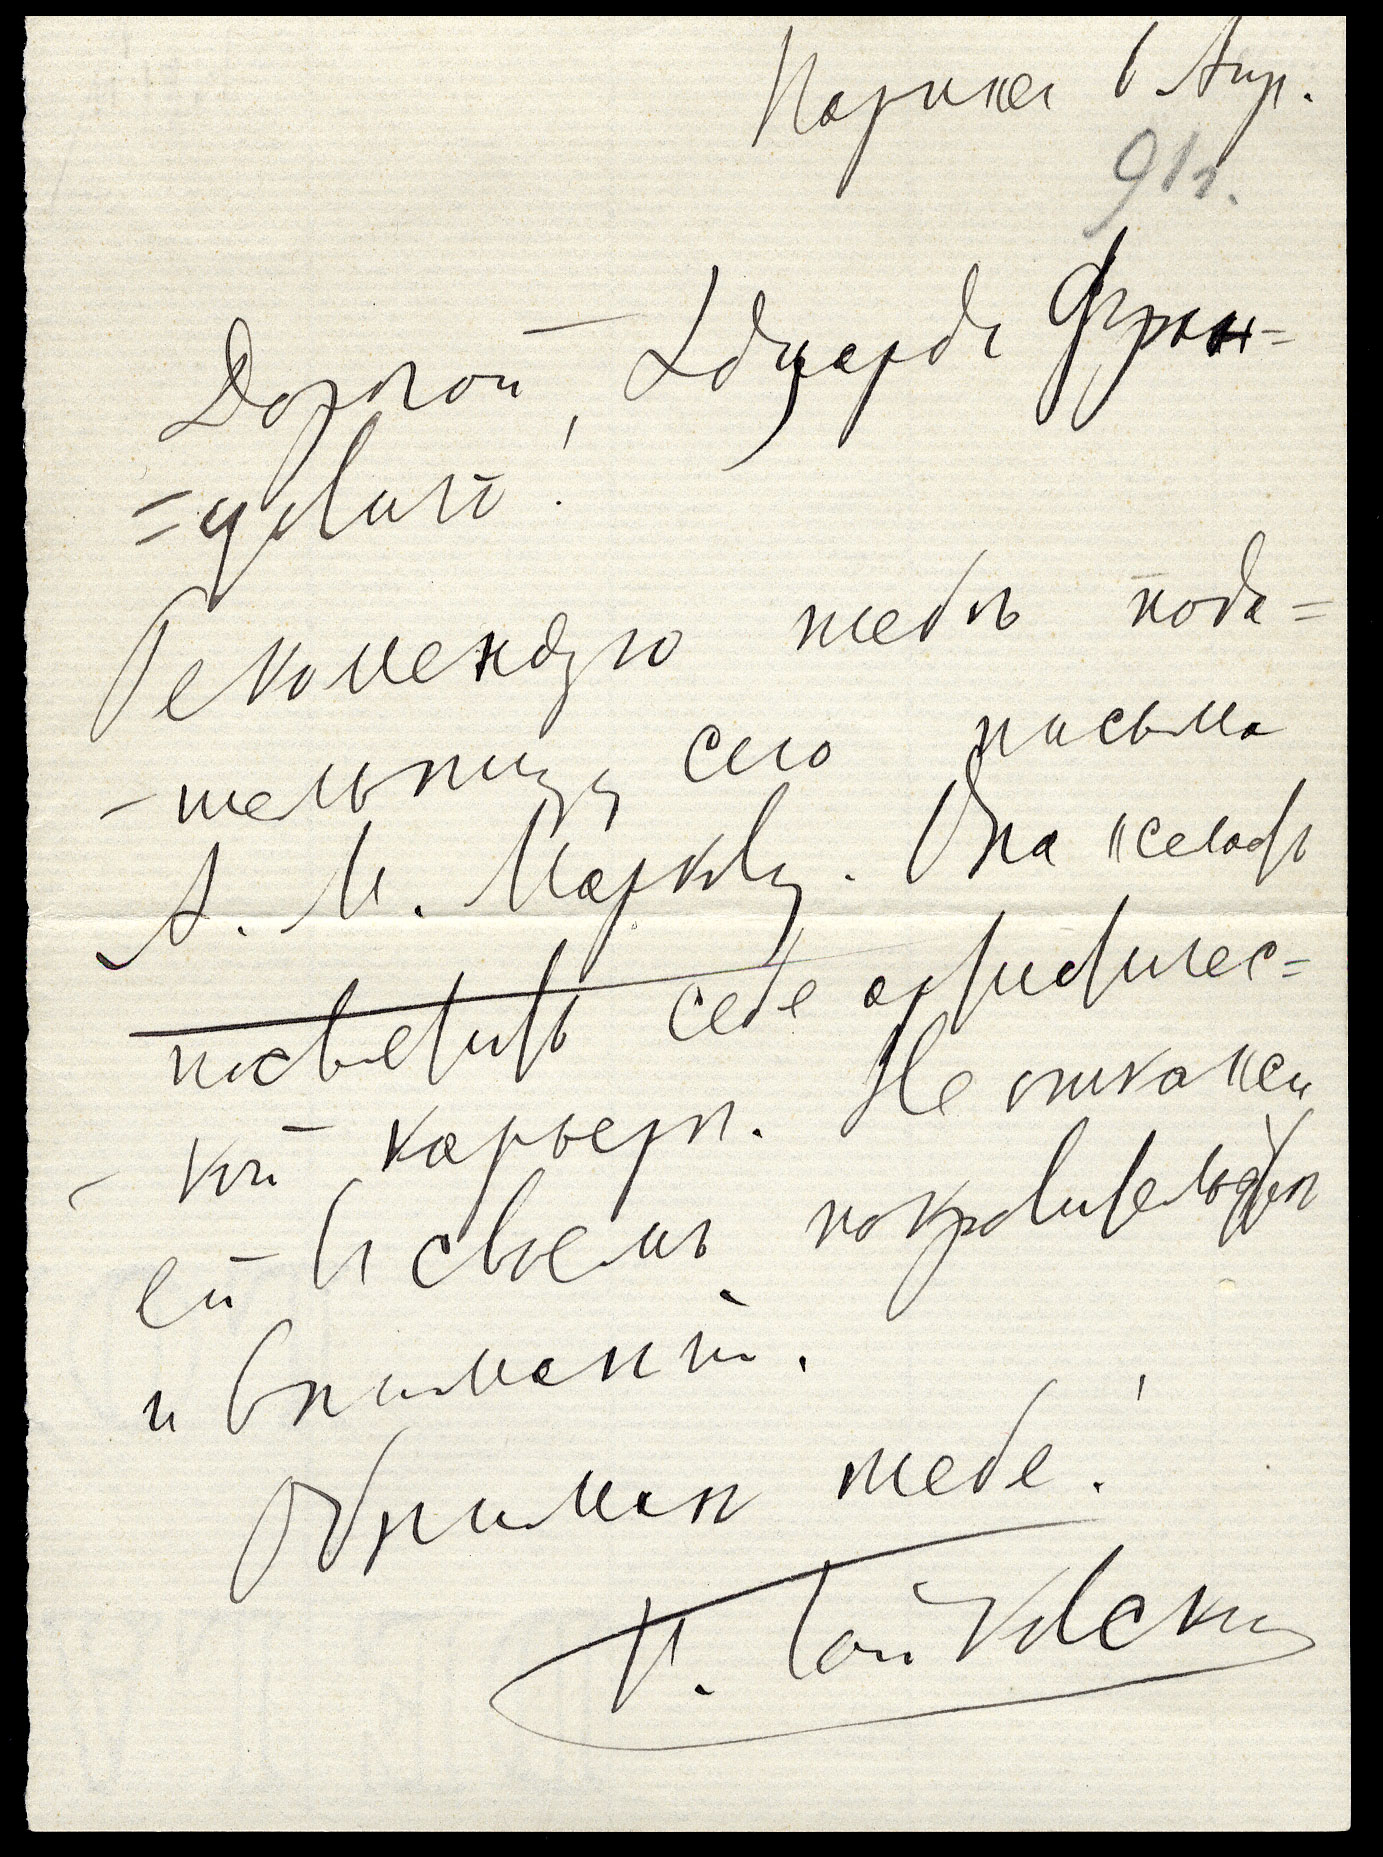 Парижъ 6 Апр.
91 г.
Дорогой Эдуардъ Фран=
=цовичъ!
Рекомендую тебѣ пода=
-тельницу сего письма
А. М. Маркову. Она желаетъ
посвятить себя артистичес=
-кой карьерѣ. Не откажи
ей въ своемъ покровительствѣ
и вниманіи.
Обнимаю тебя!
П. Чайковскій